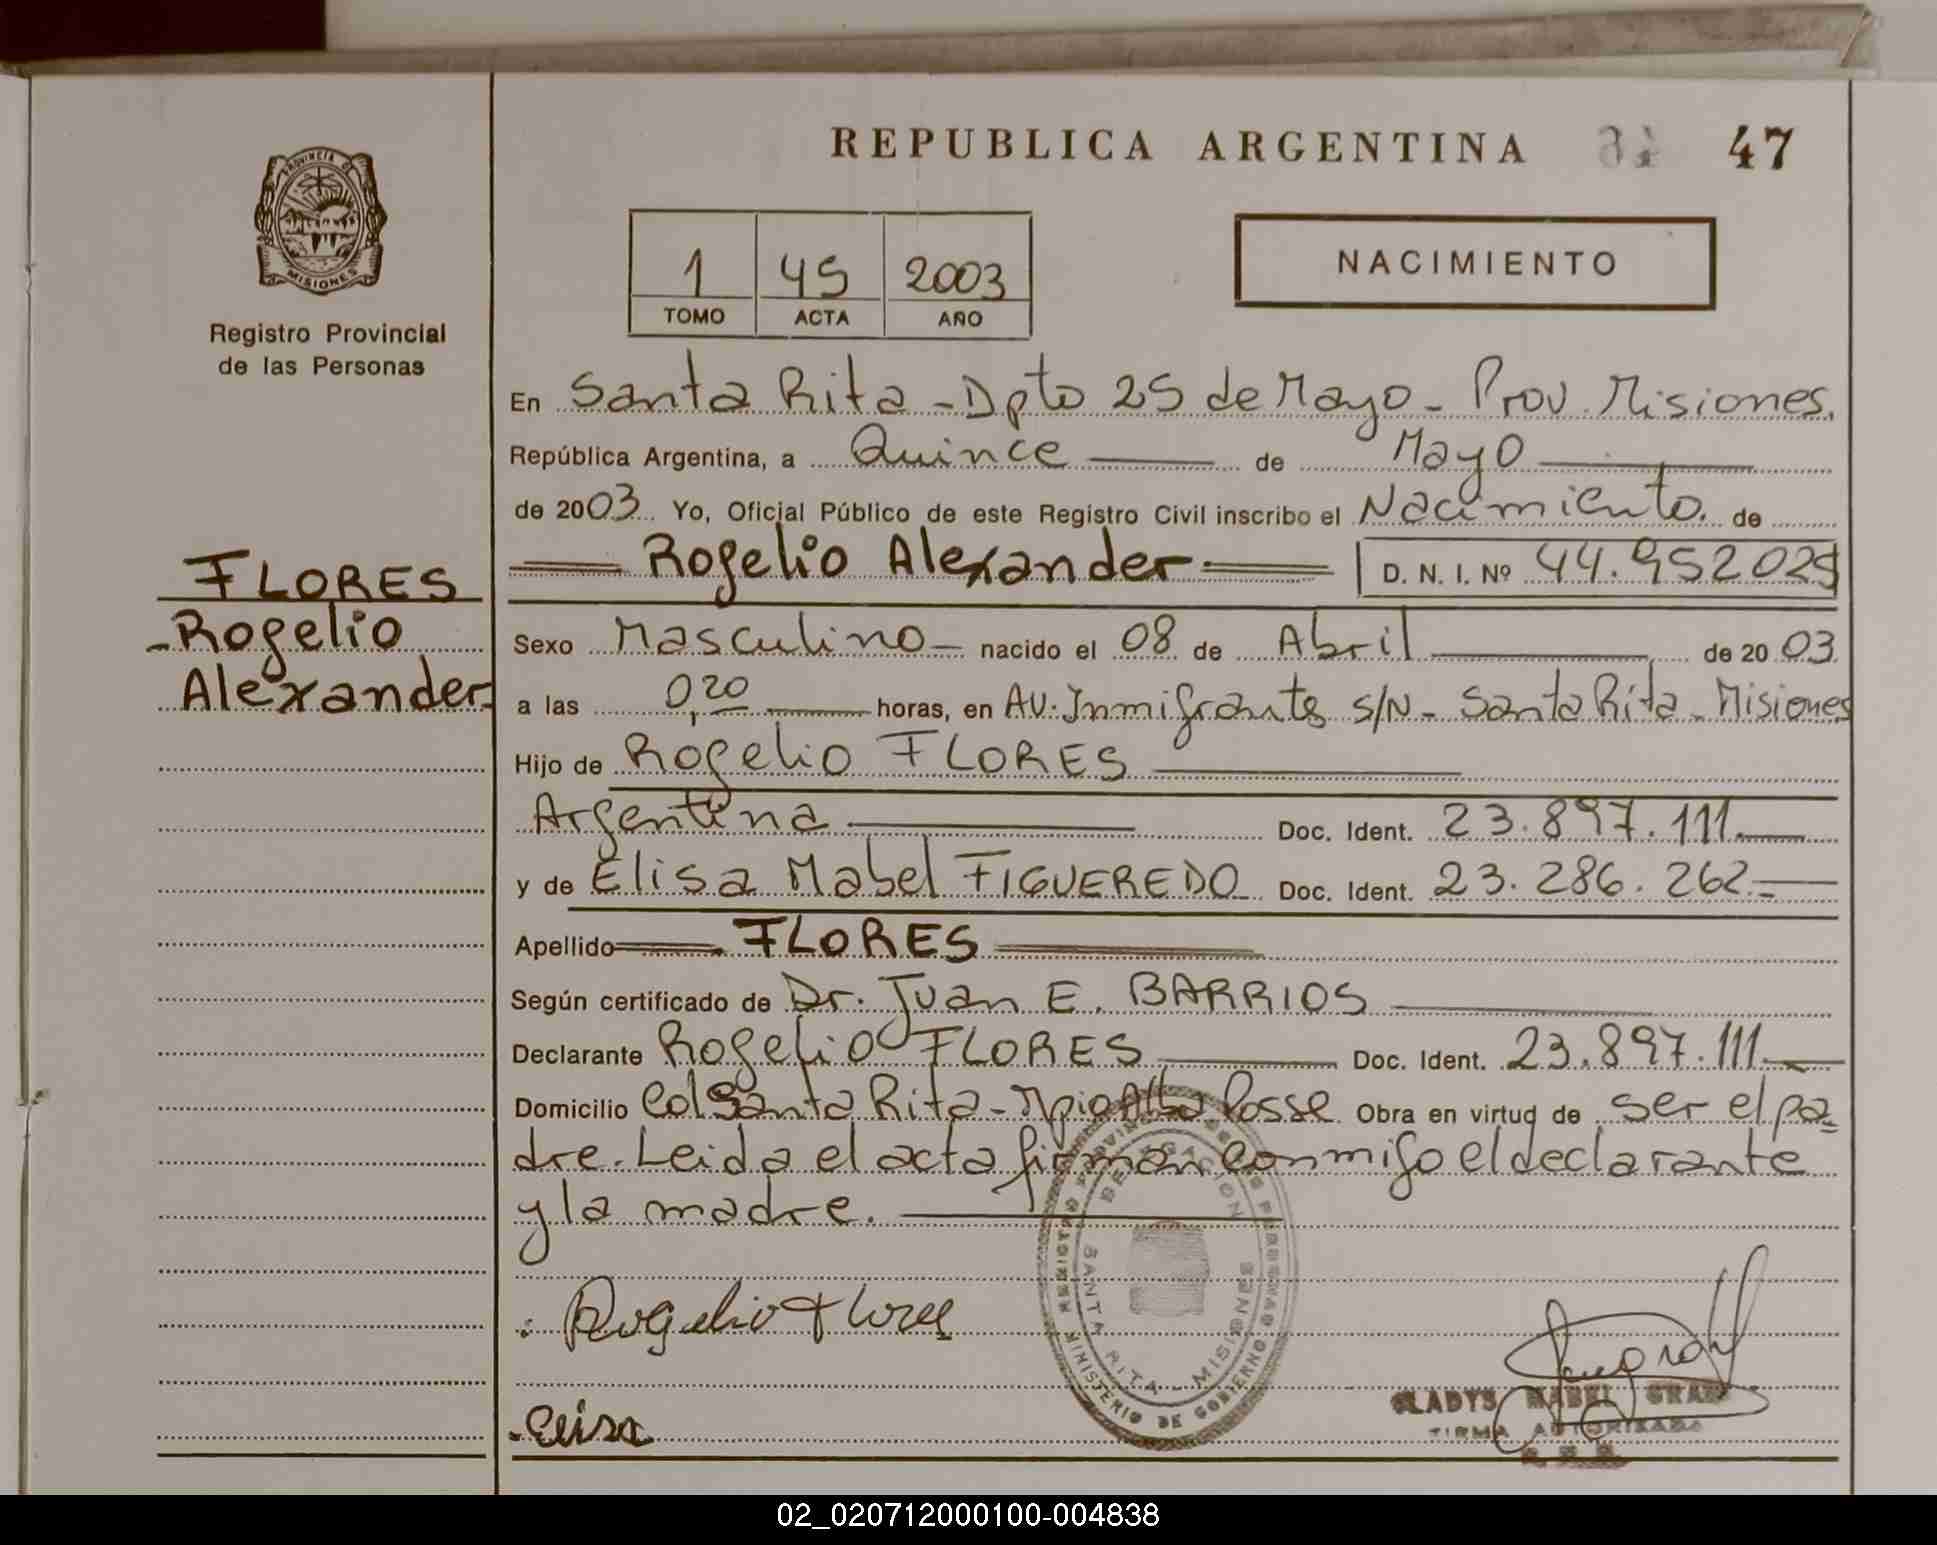 REPUBLICA ARGENTINA 47
PROVINCIA DE
MISIONES
Registro Provincial
de las Personas
1 45 2003
TOMO ACTA AÑO
NACIMIENTO
En Santa Rita - Dpto 25 de Mayo - Prov. Misiones.
República Argentina, a Quince de Mayo
de 2003 Yo, Oficial Público de este Registro Civil inscribo el Nacimiento. de
Rogelio Alexander D. N. I. Nº 44.952025
FLORES
-Rogelio
Alexander
Sexo Masculino - nacido el 08 de Abril de 2003
a las 0,20 horas, en AV. Inmigrantes s/N - Santa Rita - Misiones
Hijo de Rogelio FLORES
Argentina Doc. Ident. 23.897.111.
y de Elisa Mabel FIGUEREDO Doc. Ident. 23.286.262.-
Apellido FLORES
Según certificado de Dr. Juan E. BARRIOS
Declarante Rogelio FLORES Doc. Ident. 23.897.111.
Domicilio Col Santa Rita - Mpio Alba Posse Obra en virtud de ser el pa-
dre. Leida el acta firman conmigo el declarante
y la madre.
Rogelio Flores
Elisa
MINISTERIO DE GOBIERNO
DELEGACION
SANTA RITA - MISIONES
GLADYS MABEL GRAF
FIRMA AUTORIZADA
02_020712000100-004838